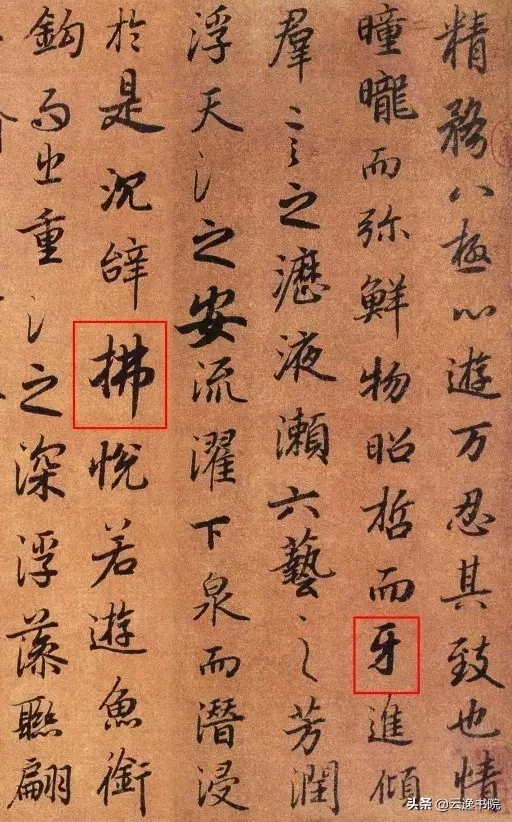 精務八極心遊万忍其致也情
曈曨而弥鮮物昭哲而牙進傾
羣言之瀝液瀨六藝之芳潤
浮天之安流濯下泉而潛浸
於是沉辝拂悅若遊魚銜
鈎而出重之深浮藻聯翩
头条 @云逸书院